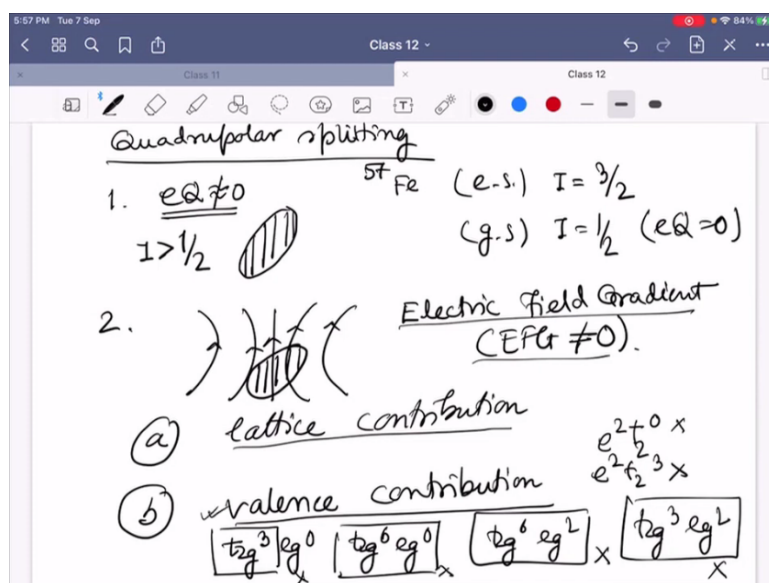 5:57 PM Tue 7 Sep
84%
Class 12
Class 11
Class 12
Quadrupolar splitting
1. eQ≠0
⁵⁷Fe (e.s.) I = 3/2
I>1/2
(g.s) I = 1/2 (eQ=0)
2.
Electric Field Gradient
(EFG ≠0).
(a) lattice contribution
e²t₂⁰ x
e²t₂³ x
(b) valence contribution
t₂g³ eg⁰ x t₂g⁶ eg⁰ x t₂g⁶ eg² x t₂g³ eg² x